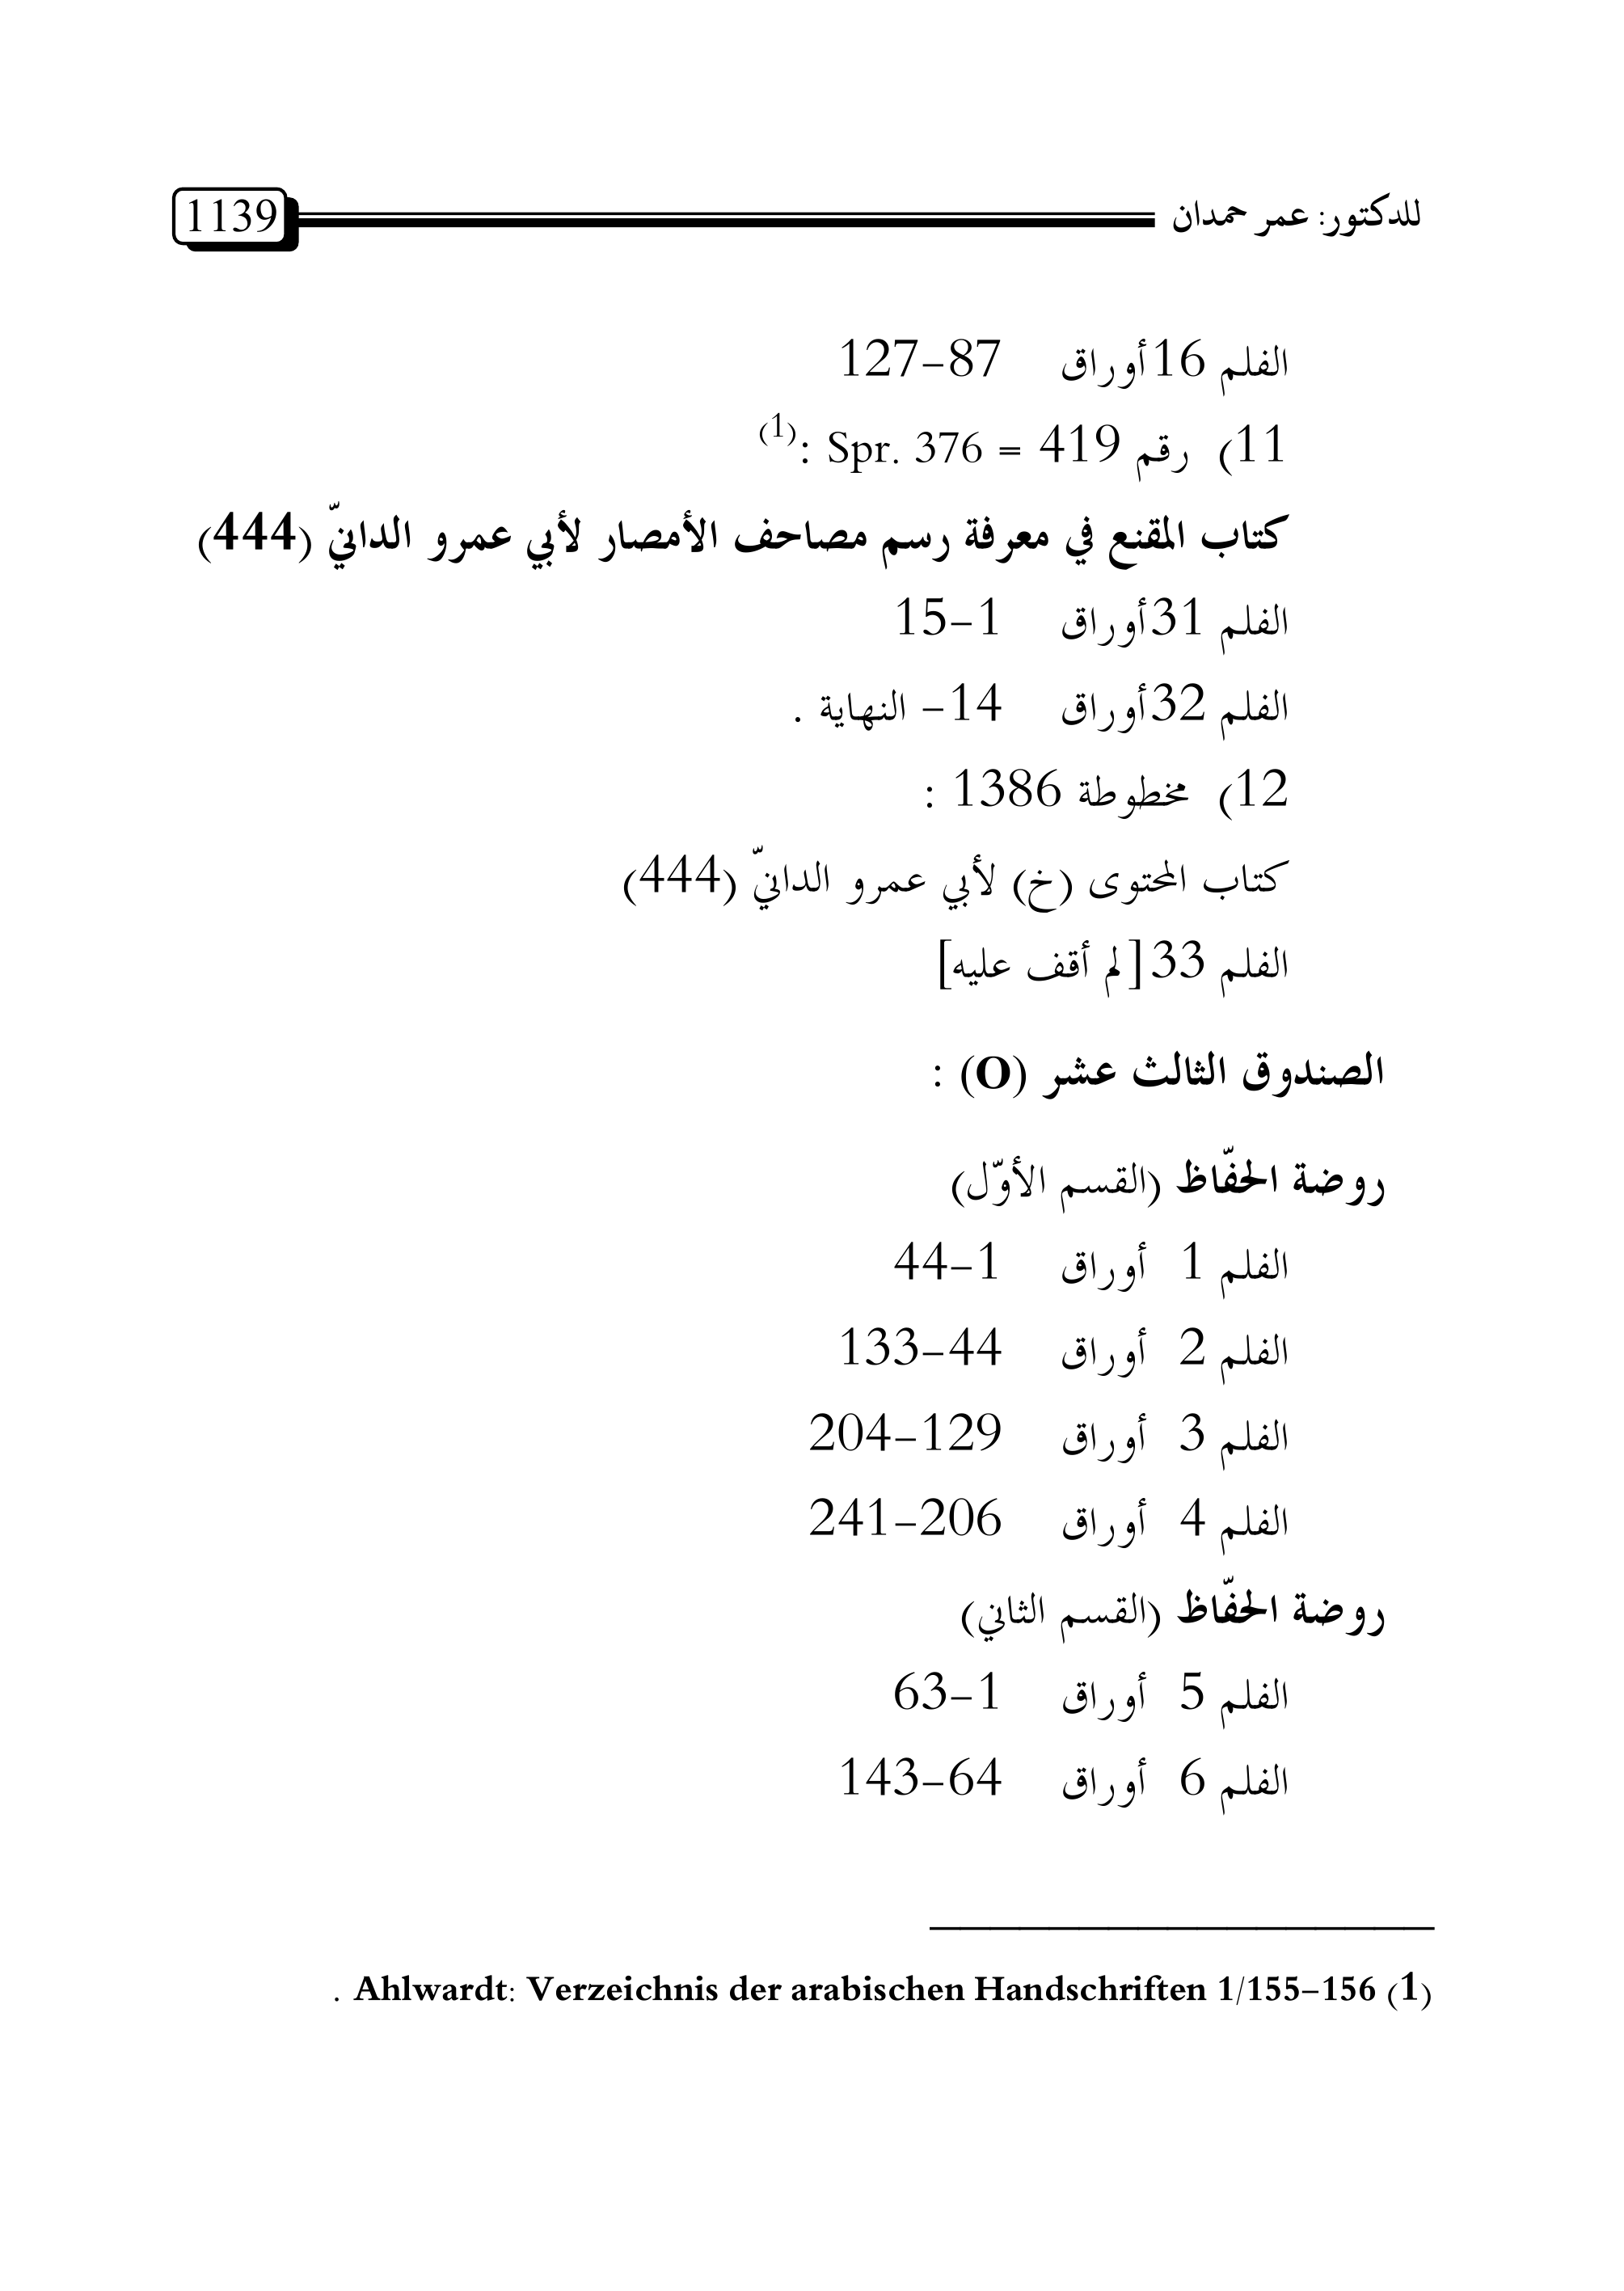 للدكتور: عمر حمدان 1139
الفلم 16 أوراق 87-127
11) رقم 419 = Spr. 376 :(1)
كتاب المقنع في معرفة رسم مصاحف الأمصار لأبي عمرو الدانيّ (444)
الفلم 31 أوراق 1-15
الفلم 32 أوراق 14- النهاية .
12) مخطوطة 1386 :
كتاب المحتوى (خ) لأبي عمرو الدانيّ (444)
الفلم 33 [لم أقف عليه]
الصندوق الثالث عشر (O) :
روضة الحفّاظ (القسم الأوّل)
الفلم 1 أوراق 1-44
الفلم 2 أوراق 44-133
الفلم 3 أوراق 129-204
الفلم 4 أوراق 206-241
روضة الحفّاظ (القسم الثاني)
الفلم 5 أوراق 1-63
الفلم 6 أوراق 64-143
(1) Ahlwardt: Verzeichnis der arabischen Handschriften 1/155-156 .